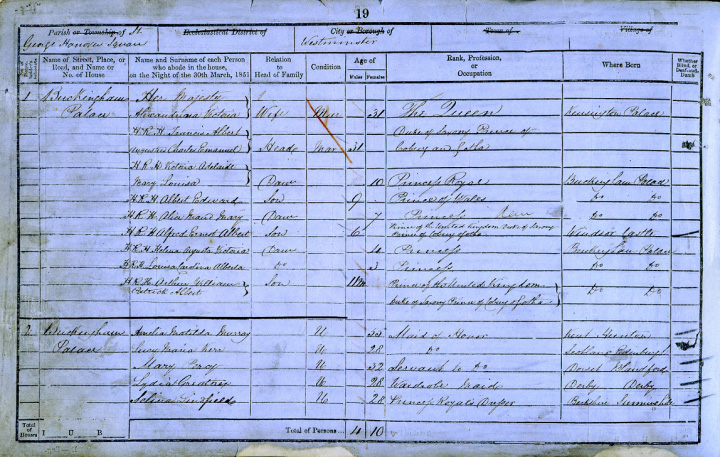 19
Parish or Township of St. George Hanover Square
Ecclesiastical District of
City or Borough of Westminster
Town of
Village of
Name of Street, Place, or Road, and Name or No. of House
Name and Surname of each Person who abode in the house, on the Night of the 30th March, 1851
Relation to Head of Family
Condition
Age of
Males Females
Rank, Profession, or Occupation
Where Born
Whether Blind, or Deaf-and-Dumb
1 Buckingham Her Majesty
Palace Alexandrina Victoria Wife Mar 31 The Queen Kensington Palace
H R H Francis Albert Duke of Saxony Prince of
Augustus Charles Emanuel Head Mar 31 Coburg and Gotha
H R H Victoria Adelaide
Mary Louisa Daur 10 Princess Royal Buckingham Palace
H R H Albert Edward Son 9 Prince of Wales Do Do
H R H Alice Maud Mary Daur 7 Princess Do Do
H R H Alfred Ernest Albert Son 6 Prince of the United Kingdom Duke of Saxony Prince of Coburg Gotha Windsor Castle
H R H Helena Augusta Victoria Daur 4 Princess Buckingham Palace
H R H Louisa Carolina Alberta Do 3 Princess Do Do
H R H Arthur William Son 11 Mo Prince of the United Kingdom Do Do
Patrick Albert Duke of Saxony Prince of Coburg & Gotha
2 Buckingham Amelia Matilda Murray U 53 Maid of Honor Kent
Palace Lucy Maria Kerr U 28 Do Scotland Edinburgh
Mary U 32 Servant to Do Dorset Blandford
Lydia U 28 Wardrobe Maid Derby Derby
Selina U 28 Princess Royals Dresser Berkshire Sunninghill
Total of Houses 1 U B Total of Persons 4 10